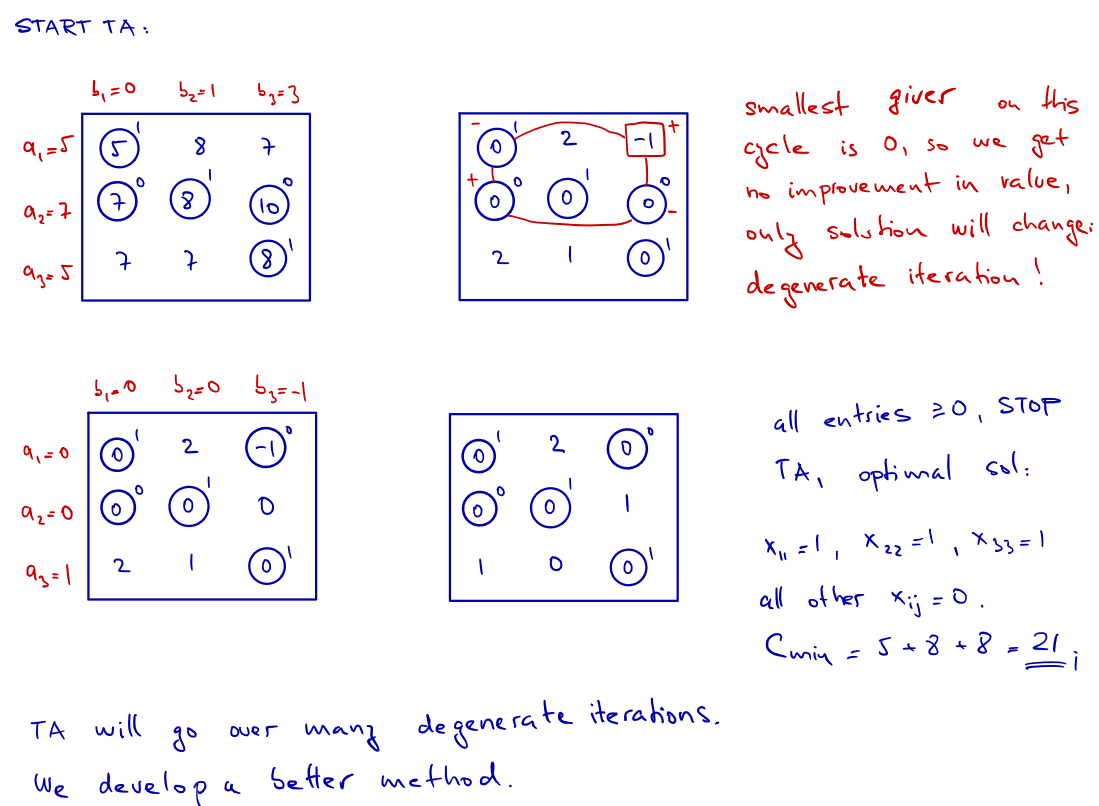 START TA:
b₁=0 b₂=1 b₃=3
a₁=5 5¹ 8 7
a₂=7 7⁰ 8¹ 10⁰
a₃=5 7 7 8¹
- 0¹ 2 -1 +
+ 0⁰ 0¹ 0⁰ -
2 1 0¹
smallest giver on this
cycle is 0, so we get
no improvement in value,
only solution will change:
degenerate iteration!
b₁=0 b₂=0 b₃=-1
a₁=0 0¹ 2 -1⁰
a₂=0 0⁰ 0¹ 0
a₃=1 2 1 0¹
0¹ 2 0⁰
0⁰ 0¹ 1
1 0 0¹
all entries ≥0, STOP
TA, optimal sol:
x₁₁=1, x₂₂=1, x₃₃=1
all other xᵢⱼ=0.
Cmin = 5+8+8 = 21;
TA will go over many degenerate iterations.
We develop a better method.